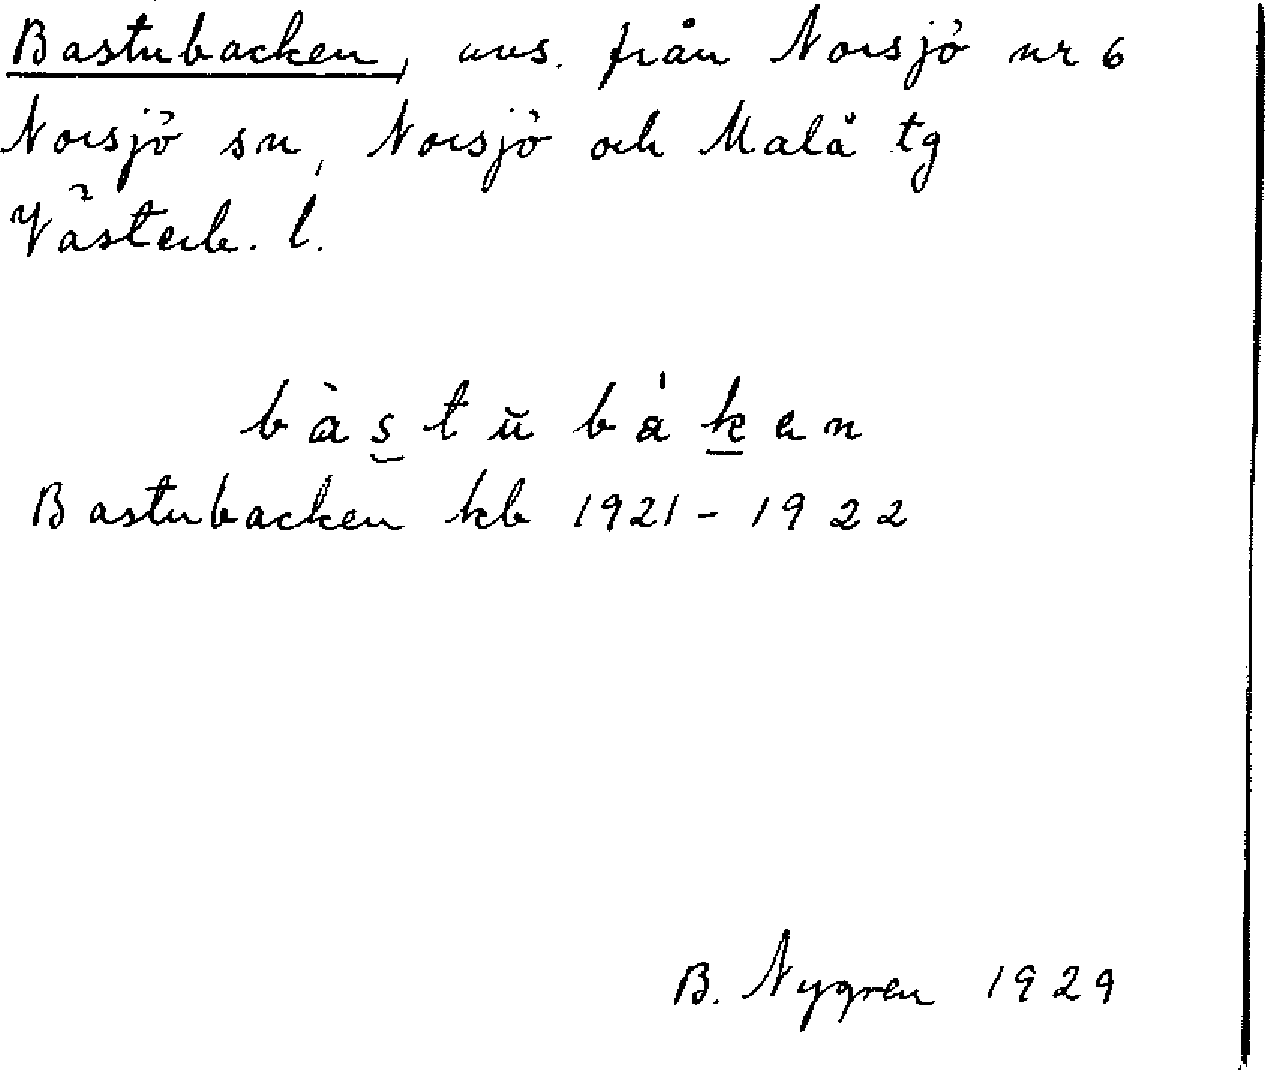 Bastubacken, avs. från Norsjö nr 6
Norsjö sn, Norsjö och Malå tg
Västerb. l.
bàs̠tŭbák̠en
Bastubacken kb 1921-1922
B. Nygren 1929